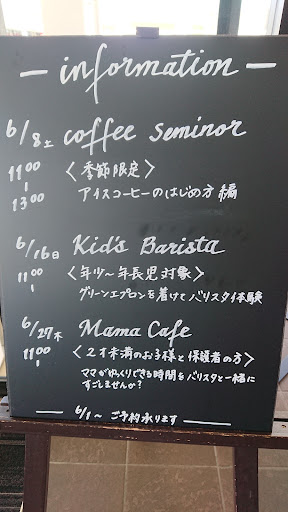 — information —
6/8土 coffee seminor
11:00 〈季節限定〉
|
13:00 アイスコーヒーのはじめ方編
6/16日 Kid's Barista
11:00 〈年少〜年長児対象〉
〜 グリーンエプロンを着けてバリスタ体験
6/27木 Mama Cafe
11:00 〈2才未満のお子様と保護者の方〉
〜 ママがゆっくりできる時間をバリスタと一緒に
すごしませんか?
— 6/1〜 ご予約承ります —